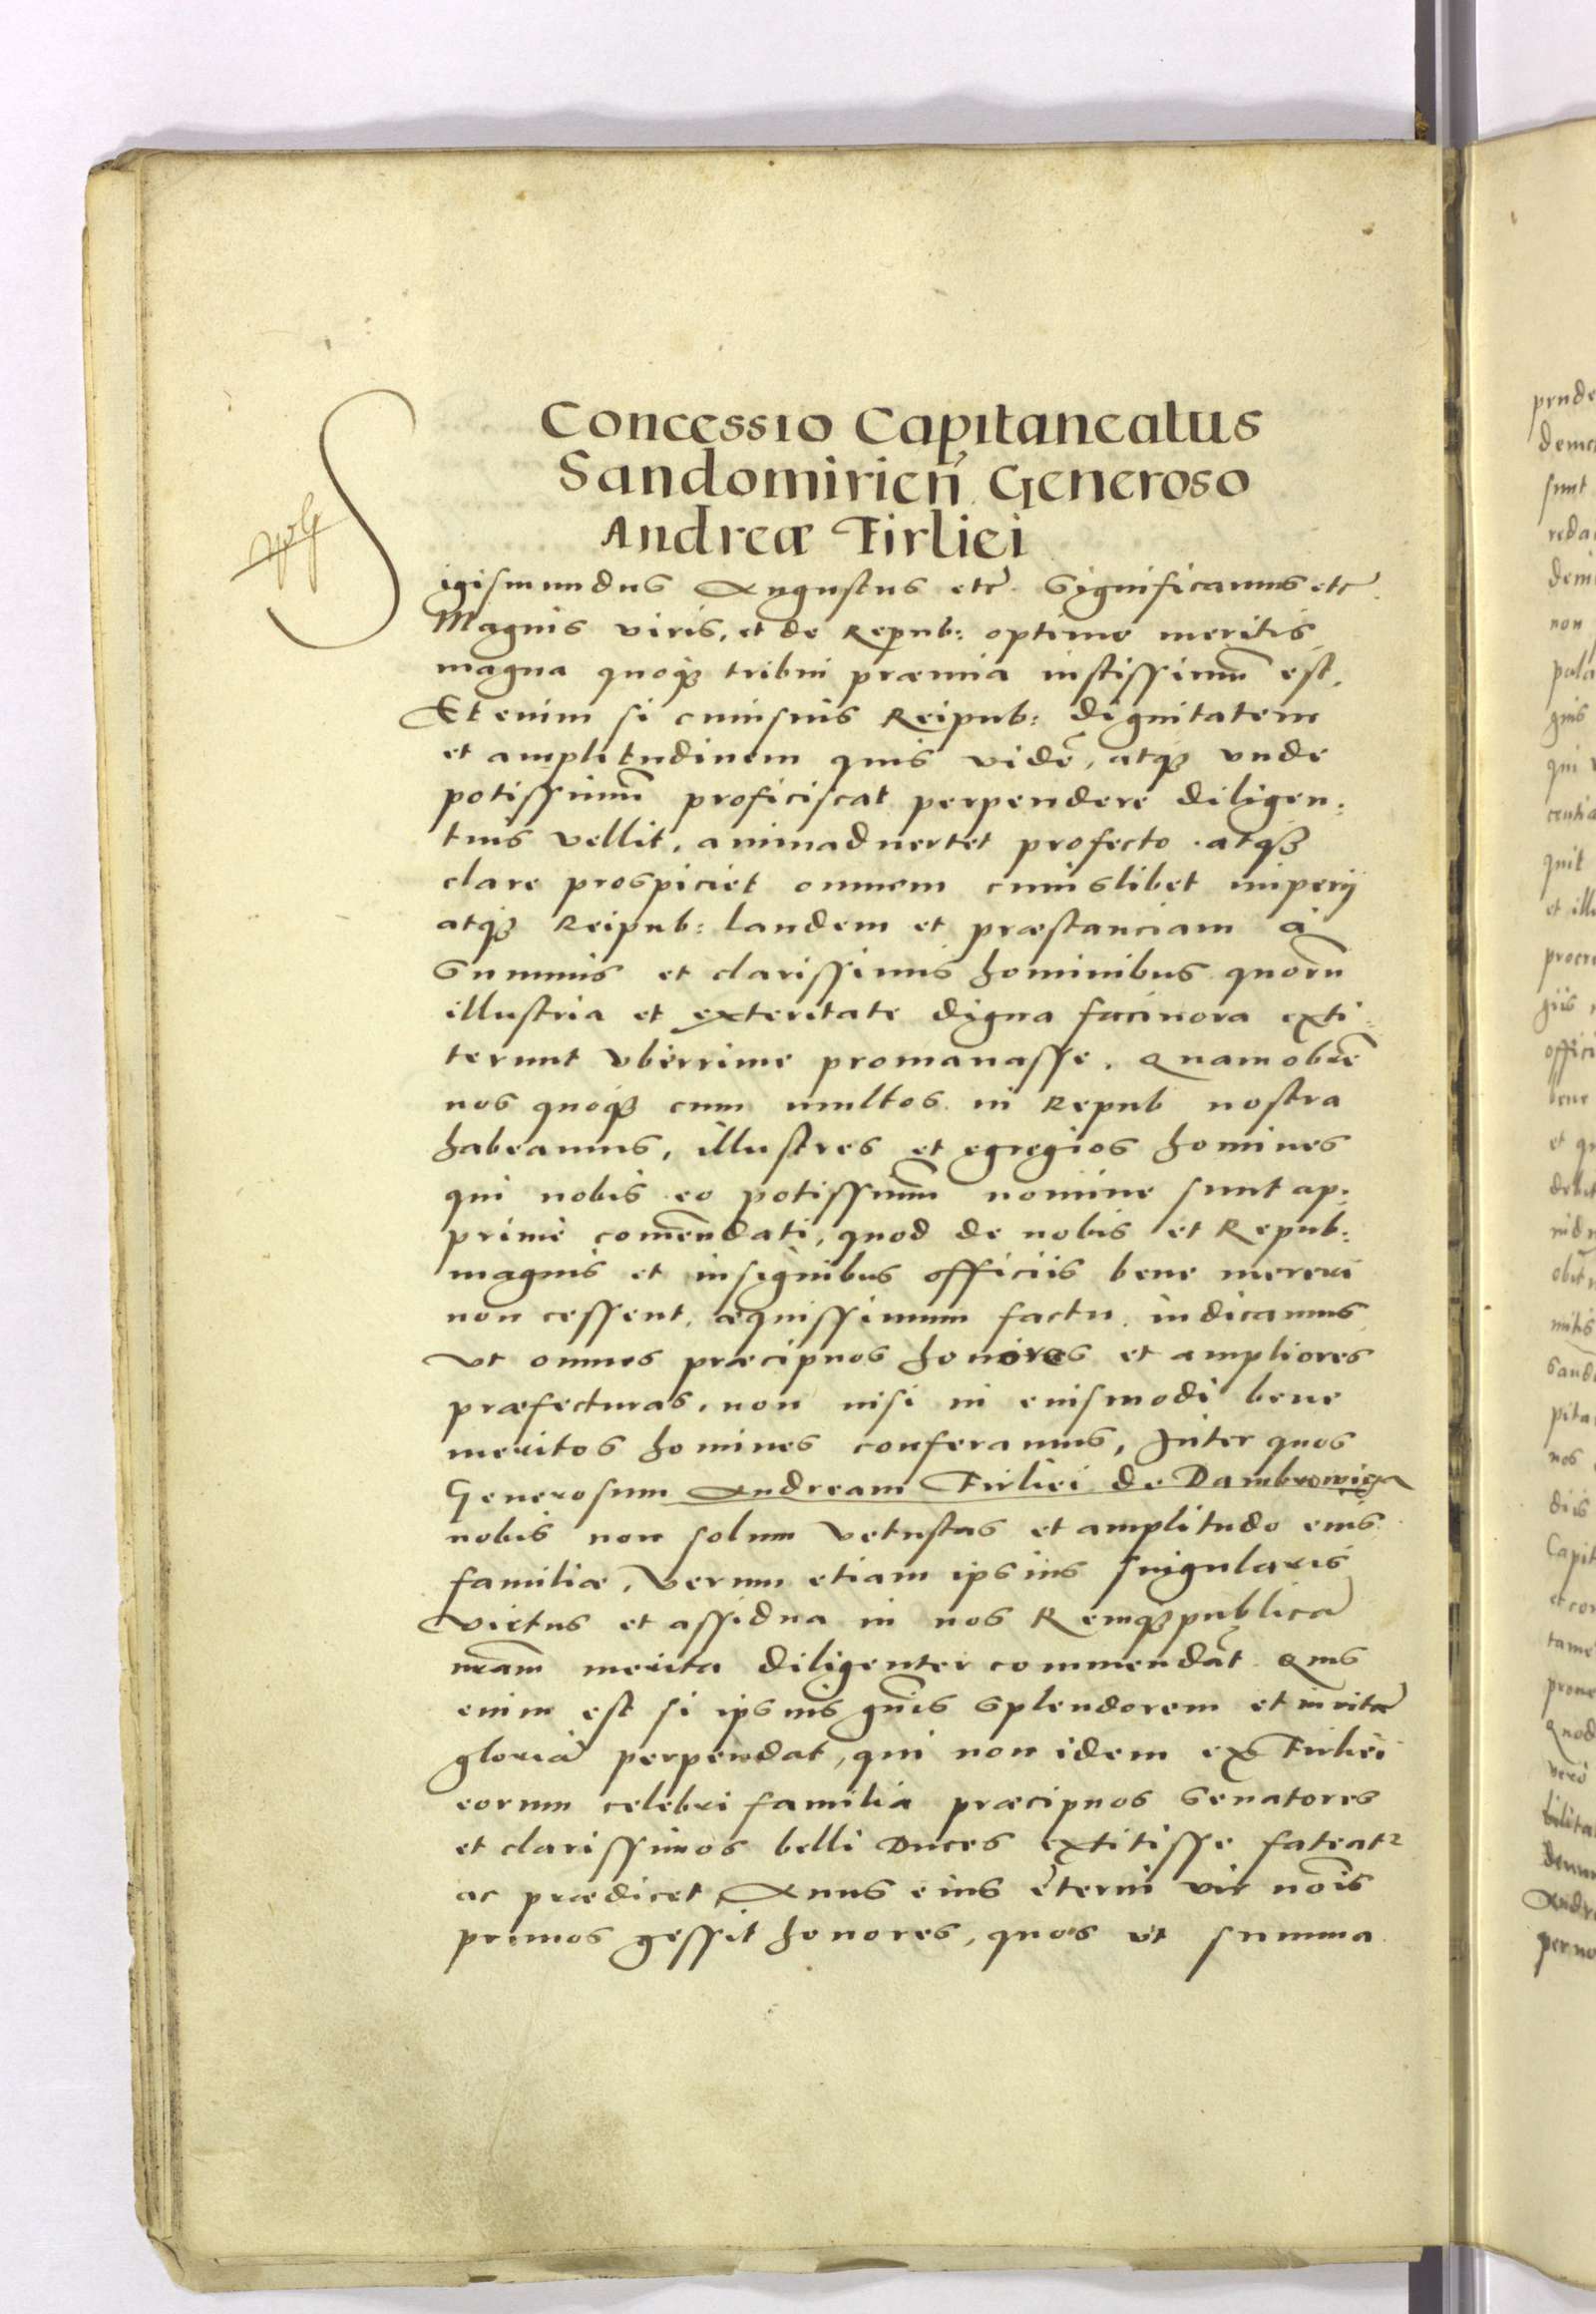 Concessio Capitaneatus
Sandomirien̄ Generoso
Andreæ Firliei
Sigismundus Augustus etc̃. Significamus etc̃.
Magnis viris, et de Repub: optime meritis
magna quoqꝫ tribui præmia iustissimū est.
Etenim si cuiusuis Reipub: dignitatem
et amplitudinem quis vidē, atqꝫ vnde
potissimū proficiscat perpendere diligen:
tius vellit, animaduertet profecto atqꝫ
clare prospiciet omnem cuiuslibet imperij
atqꝫ Reipub: laudem et præstanciam à
summis et clarissimis hominibus quorū
illustria et exteritate digna facinora exti:
terunt vberrime promanasse. Quamobrē
nos quoqꝫ cum multos in Repub nostra
habeamus, illustres et egregios homines
qui nobis eo potissimū nomine sunt ap:
prime com̄endati, quod de nobis et Repub:
magnis et insignibus officiis bene mereri
non cessent, æquissimum factu iudicamus
vt omnes præcipuos honores et ampliores
præfecturas, non nisi in eiusmodi bene
meritos homines conferamus, Inter quos
Generosum Andream Firliei de Dambrowicza
nobis non solum vetustas et amplitudo eius
familiæ, verum etiam ipsius singularis
virtus et assidua in nos Remqꝫ publicā
nr̄am merita diligenter commendāt. Quis
enim est si ipsius gn̄is splendorem et auitā
gloriā perpendat, qui non idem ex Firliei
eorum celebri familia præcipuos senatores
et clarissimos belli Duces extitisse fateat²
ac prædicet, Auus eius æterni vir nōis
primos gessit honores, quos vt summa